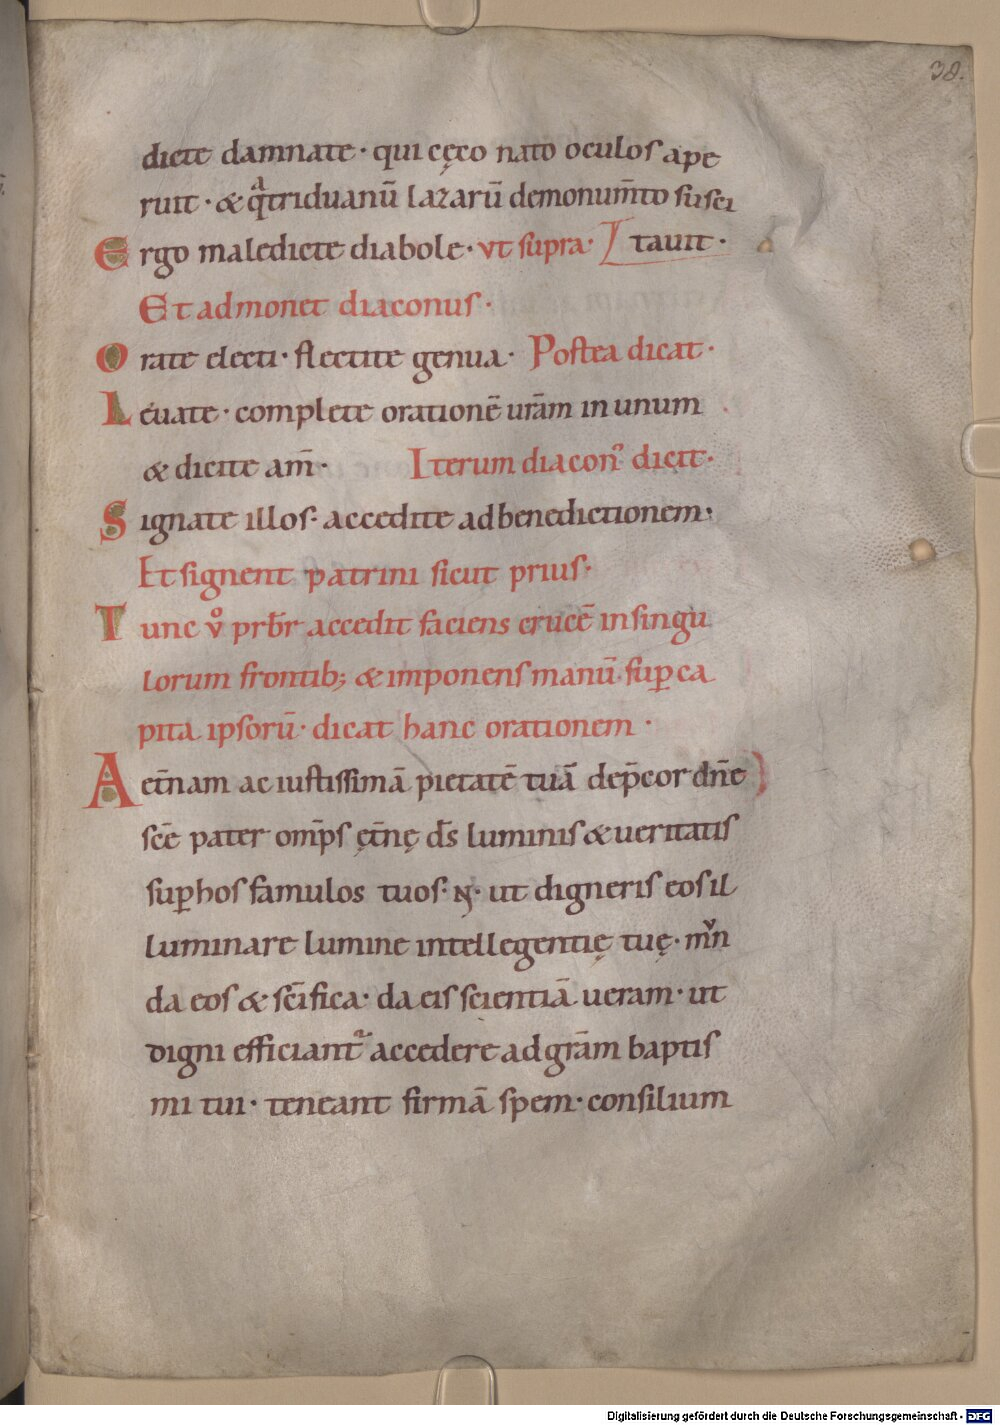 38.
dicte damnate · qui cęco nato oculos ape
ruit · & qᷓtriduanū lazarū demonum̅to susci
Ergo maledicte diabole · vt supra · tauit ·
Et admonet diaconus ·
Orate electi · flectite genua · Postea dicat ·
Leuate · complete orationē urām in unum
& dicite am̅ · Iterum diacon᾽ dicit ·
Signate illos · accedite ad benedictionem ·
Et signent patrini sicut prius ·
Tunc v̊ prb̅r accedit faciens crucē in singu
lorum frontib; & imponens manū sup̱ ca
pita ipsorū · dicat hanc orationem ·
Aet̅nam ac iustissimā pietatē tuā dep̄cor dn̄e
sc̄e pater om̅ps ęt̅nę d̄s luminis & ueritatis
sup̱ hos famulos tuos · N · ut digneris eos il
luminare lumine intellegentię tuę · mvn
da eos & sc̄ifica · da eis scientiā ueram · ut
digni efficiant᷑ accedere ad grām baptis
mi tui · teneant firmā spem · consilium
Digitalisierung gefördert durch die Deutsche Forschungsgemeinschaft - DFG